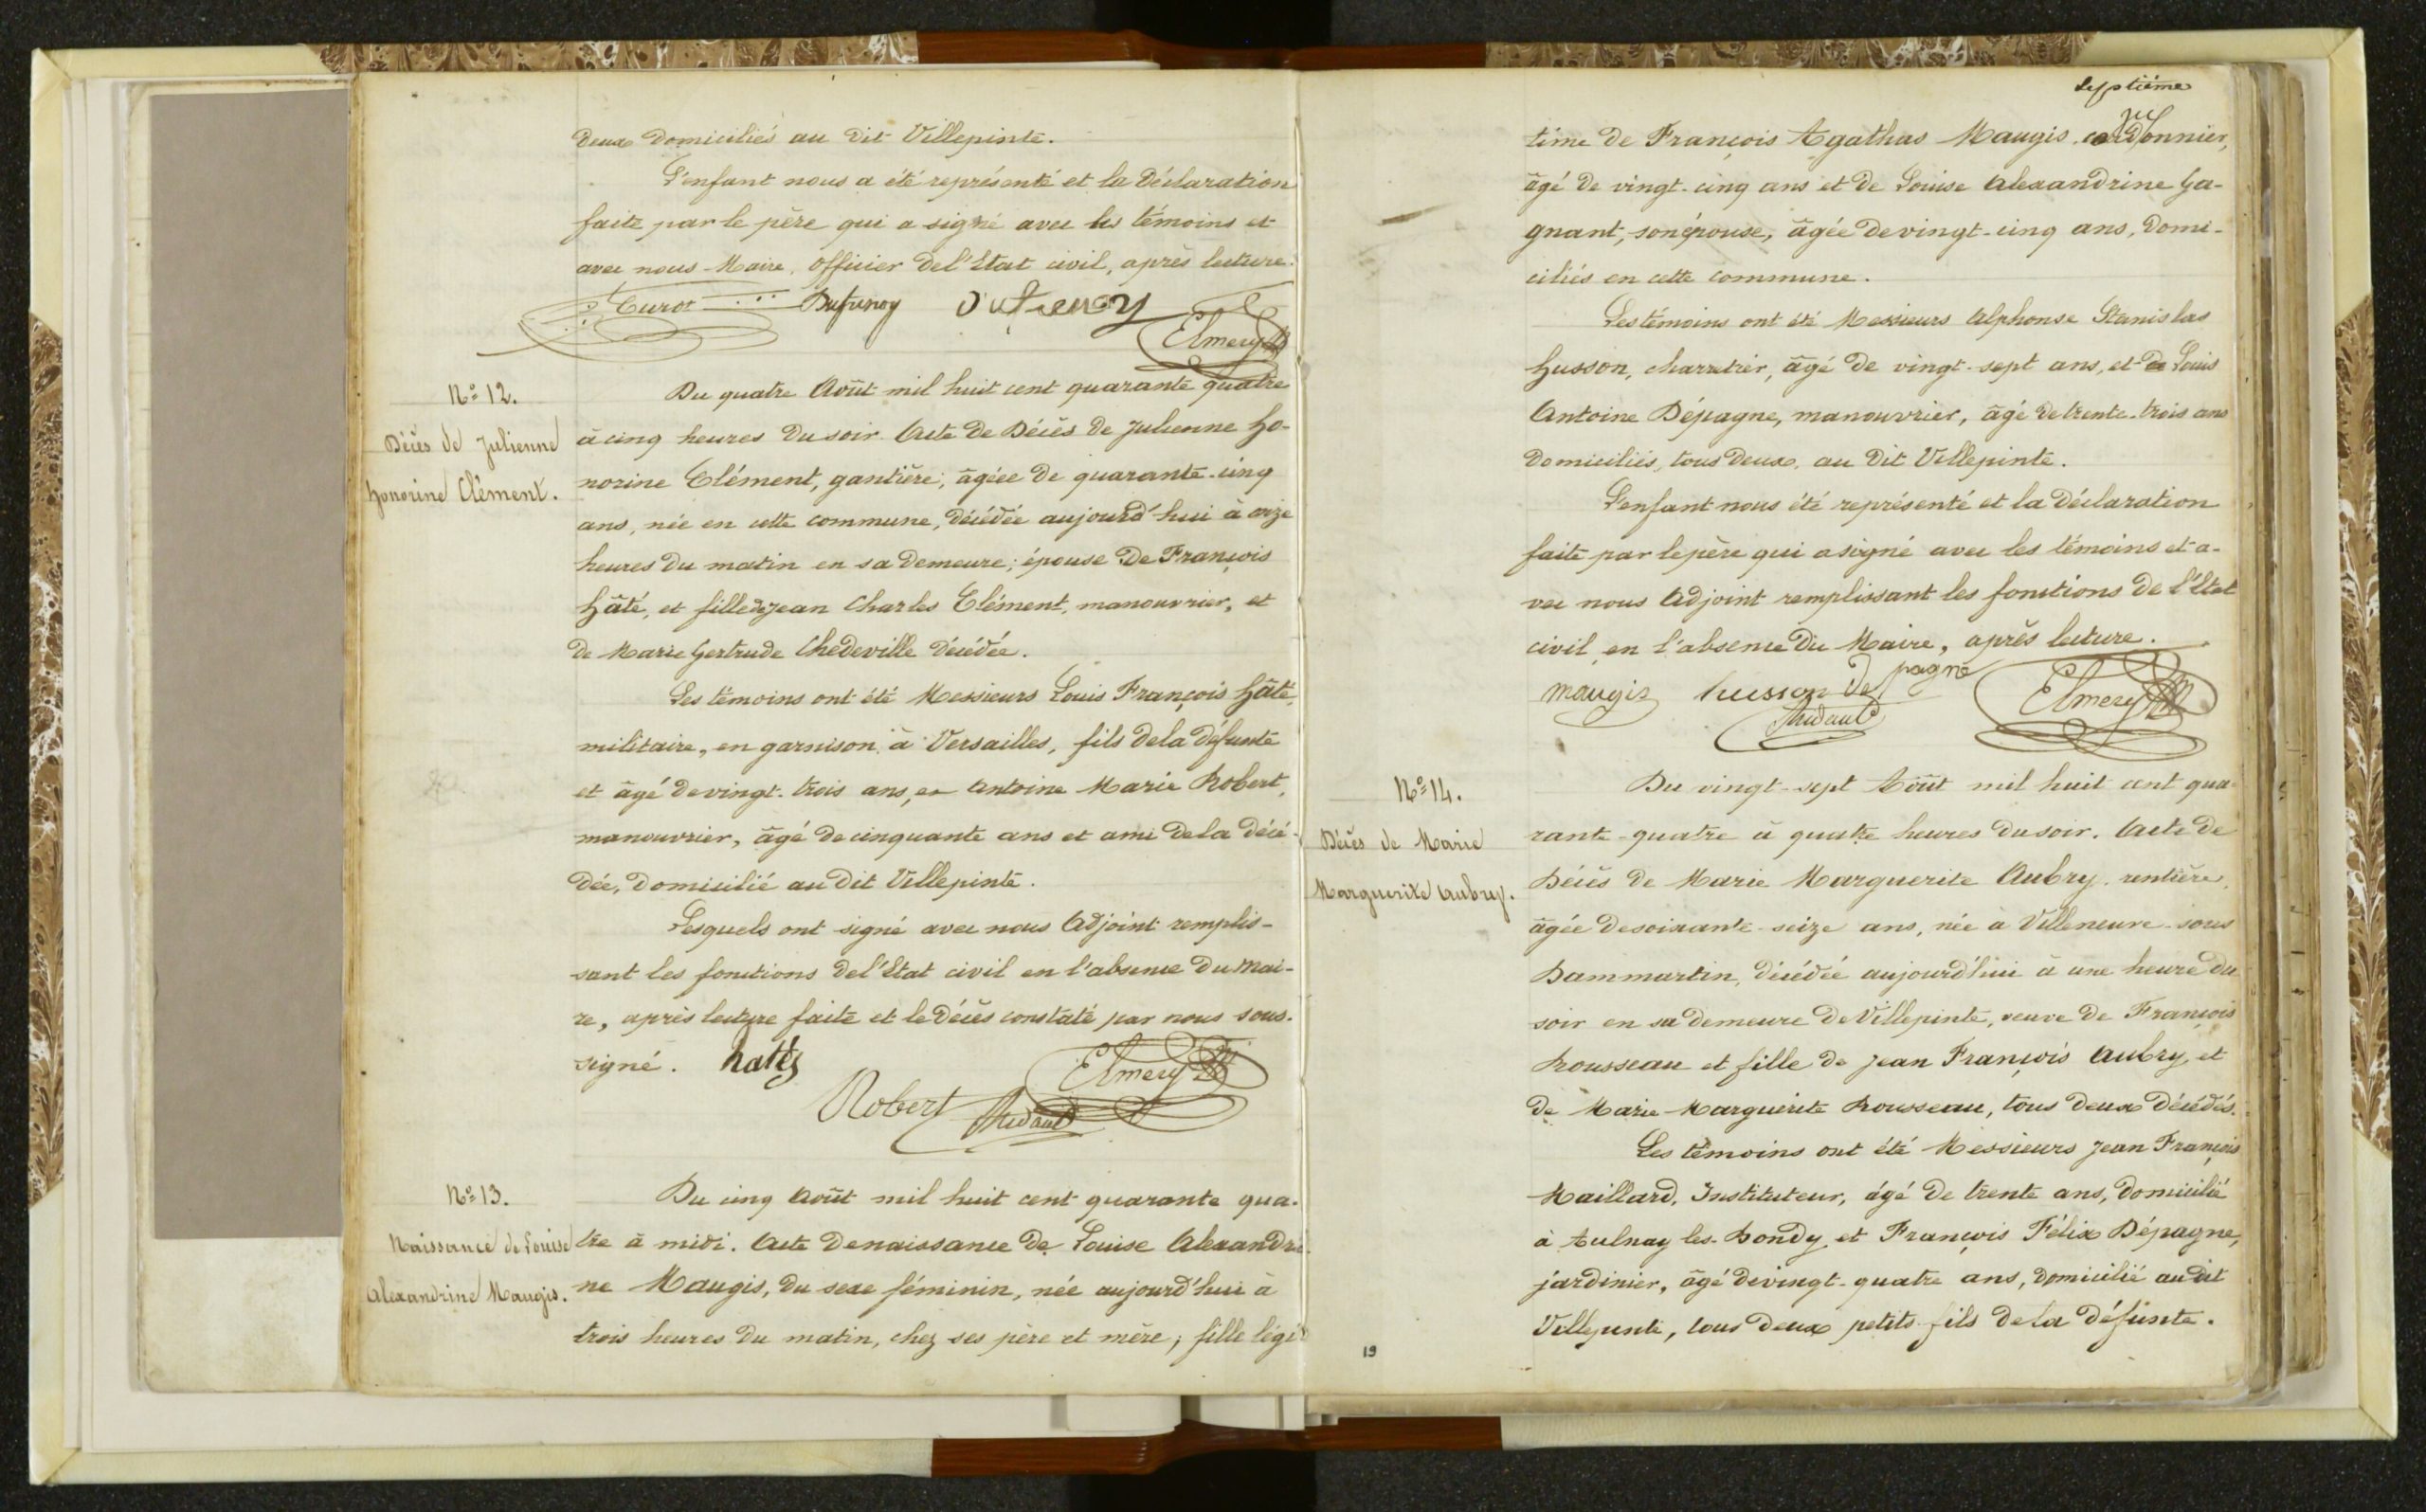 deux domiciliés au dit Villepinte.
L'enfant nous a été représenté et la déclaration
faite par le père qui a signé avec les témoins et
avec nous Maire, officier de l'Etat civil, après lecture.
Turot Dufrenoy Dufrenoy
Elmery
N.º 12.
Décès de Julienne
honorine Clément.
Du quatre Août mil huit cent quarante quatre
à cinq heures du soir. Acte de Décès de Julienne Ho-
norine Clément, gantière, âgée de quarante-cinq
ans, née en cette commune, décédée aujourd'hui à onze
heures du matin en sa demeure; épouse de François
hâté, et fille de Jean Charles Clément, manouvrier, et
de Marie Gertrude Chedeville décédée.
Les témoins ont été Messieurs Louis François hâté,
militaire, en garnison à Versailles, fils de la défunte
et âgé de vingt-trois ans, et Antoine Marie Robert,
manouvrier, âgé de cinquante ans et ami de la décé-
dée, domicilié au dit Villepinte.
Lesquels ont signé avec nous Adjoint remplis-
sant les fonctions de l'Etat civil en l'absence du Mai-
re, après lecture faite et le décès constaté par nous sous-
signé. hatés
Elmery
Robert Thidault
N.º 13.
Naissance de Louise
Alexandrine Maugis.
Du cinq Août mil huit cent quarante qua-
tre à midi. Acte de naissance de Louise Alexandri-
ne Maugis, du sexe féminin, née aujourd'hui à
trois heures du matin, chez ses père et mère; fille légi-
septième
time de François Agathas Maugis, cordonnier,
âgé de vingt-cinq ans et de Louise Alexandrine Ga-
gnant, son épouse, âgée de vingt-cinq ans, domi-
ciliés en cette commune.
Les témoins ont été Messieurs Alphonse Stanislas
Husson, charretier, âgé de vingt-sept ans, et de Louis
Antoine Dépagne, manouvrier, âgé de trente-trois ans
domiciliés, tous deux, au dit Villepinte.
L'enfant nous été représenté et la déclaration
faite par le père qui a signé avec les témoins et a-
vec nous Adjoint remplissant les fonctions de l'Etat
civil, en l'absence du Maire, après lecture.
maugis husson Depagne Elmery
Thidault
N.º 14.
Décès de Marie
Marguerite Aubry.
Du vingt-sept Août mil huit cent qua-
rante-quatre à quatre heures du soir. Acte de
Décès de Marie Marguerite Aubry, rentière,
âgée de soixante-seize ans, née à Villeneuve-sous
Dammartin, décédée aujourd'hui à une heure du
soir en sa demeure de Villepinte, veuve de François
Rousseau et fille de Jean François Aubry, et
de Marie-Marguerite Rousseau, tous deux décédés.
Les témoins ont été Messieurs Jean François
Maillard, Instituteur, âgé de trente ans, domicilié
à Aulnay les-Bondy et François Félix Dépagne,
jardinier, âgé de vingt-quatre ans, domicilié au dit
Villepinte, tous deux petits-fils de la défunte.
19